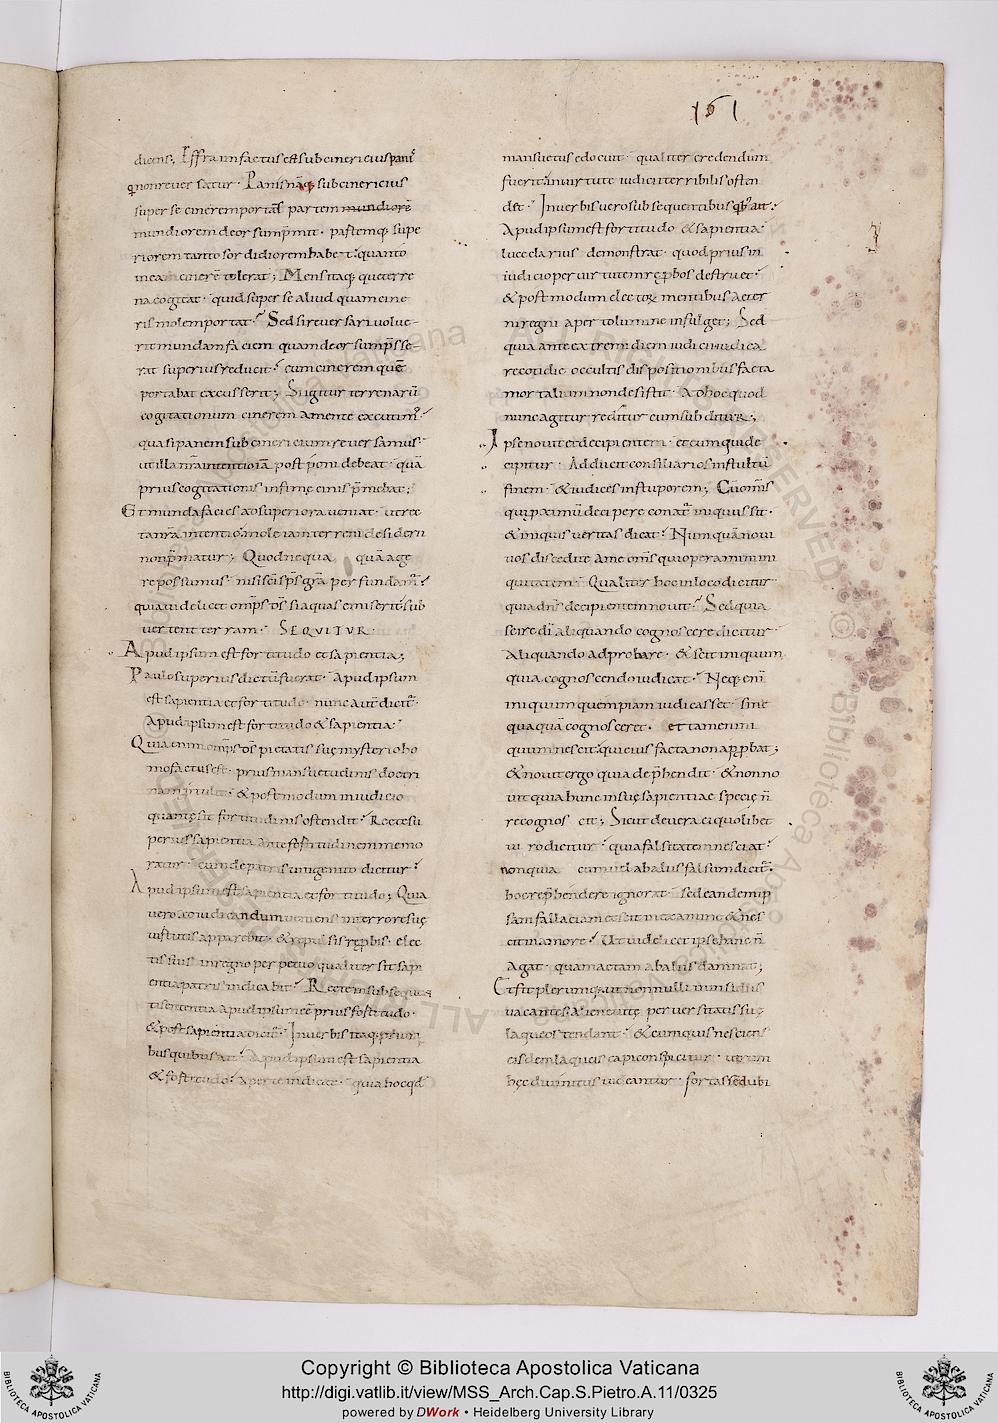 161
dicens; Effraim factus est subcinericius panis
qui non reversatur. Panis namq; subcinericius
super se cinerem portat partem mundiorē
mundiorem deorsum premit. pastemq; supe
riorem tanto sordidiorem habet. quanto
in ea cinerē tolerat; Mens itaq; que terre
na cogitat. quid super se aliud quam cine
ris molem portat? Sed si reversari volue
rit mundam faciem quam deorsum presse
rat superius reducit. cum cinerem quē
portabat excusserit; Si igitur terrenarū
cogitationum cinerem a mente excutimus
quasi panem subcinericium reversamus
ut illa nr̄a intentio iā postponi debeat. quā
prius cogitationis infimę cinis p̄mebat;
Et munda facies ad superiora veniat. ut rec
ta nr̄a intentio. mole iam terreni desiderii
non p̄matur; Quod nequaquā age
re possumus. nisi sc̄i sp̄s gr̄a perfundamur.
quia videlicet omp̄s d̄s si aquas emiserit. sub
vertent terram. SEQVITVR.
Apud ipsum est fortitudo et sapientia;
Paulo superius dictū fuerat. Apud ipsum
est sapientia et fortitudo. nunc aut̄ dicit̄.
Apud ipsum est fortitudo & sapientia.
Quia enim omp̄s d̄s pietatis suę mysterio ho
mo factus est. prius mansuetudinis doctri
nam intulit. & postmodum in iudicio
quantę sit fortitudinis ostendit. Recte su
perius sapientia ante fortitudinem memo
ratur. cum de patris unigenito dicitur.
Apud ipsum est sapientia et fortitudo; Quia
vero ad iudicandum veniens in terrore suę
virtutis apparebit. & repulsis repbis. elec
tis suis in regno perpetuo qualiter sit sapi
entia patris indicabit. Recte in subsequen
ti sententia apud ipsum eē prius fortitudo.
& post sapientia dicit̄. In verbis itaq; priori
bus quibus ait. Apud ipsum est sapientia
& fortitudo. aperte indicat. quia hoc qd̄
mansuetus edocuit. qualiter credendum
fuerit in virtute iudicii terribilis osten
det. In verbis vero subsequentibus quib; ait.
Apud ipsum est fortitudo & sapientia.
luce clarius demonstrat. quod prius in
iudicio per virtutem repbos destruet.
& postmodum electorum mentibus aeter
ni regni a perto lumine infulget; Sed
quia ante extremi diem iudicii iudica
re cotidie occultis dispositionibus facta
mortalium non desistit. Ad hoc quod
nunc agitur reditur cum subditur;
Ipse novit et decipientem. et eum qui de
cipitur. Adducit consiliarios in stultū
finem. & iudices in stuporem; Cū om̄is
qui pximū decipere conat̄ iniquus sit.
& iniquis veritas dicat. Numquā novi
vos discedite a me om̄s qui operamini ini
quitatem. Qualiter hoc in loco dicitur
quia dn̄s decipientem novit. Sed quia
scire dī aliquando cognoscere dicitur.
Aliquando adprobare. & scit iniquum
quia cognoscendo iudicat. Neq; enī
iniquum quempiam iudicasset. si ne
quaquā cognosceret. et tamen ini
quum nescit. qui eius facta non appbat;
& novit ergo quia dep̄hendit. & non no
vit quia hunc in suę sapientiae speciē n̄
recognoscit; Sicut de veraci quolibet
viro dicitur. quia falsitatem nesciat.
non quia cum vel ab aliis falsum dicit̄.
hoc rep̄hendere ignorat. sed eandem ip
sam fallaciam et scit in examine & nes
cit in amore. Ut videlicet ipse hanc n̄
agat. quam actam ab aliis damnat;
Et fit plerumq; ut nonnulli in insidiis
vacantes alienę vitę perversitatis suę
laqueos tendant. & cum quis nesciens
eisdem laqueis capi conspicitur. utrum
hęc divinitus videantur. fortasse dubi
Copyright © Biblioteca Apostolica Vaticana
http://digi.vatlib.it/view/MSS_Arch.Cap.S.Pietro.A.11/0325
powered by DWork • Heidelberg University Library
BIBLIOTECA APOSTOLICA VATICANA
BIBLIOTECA APOSTOLICA VATICANA